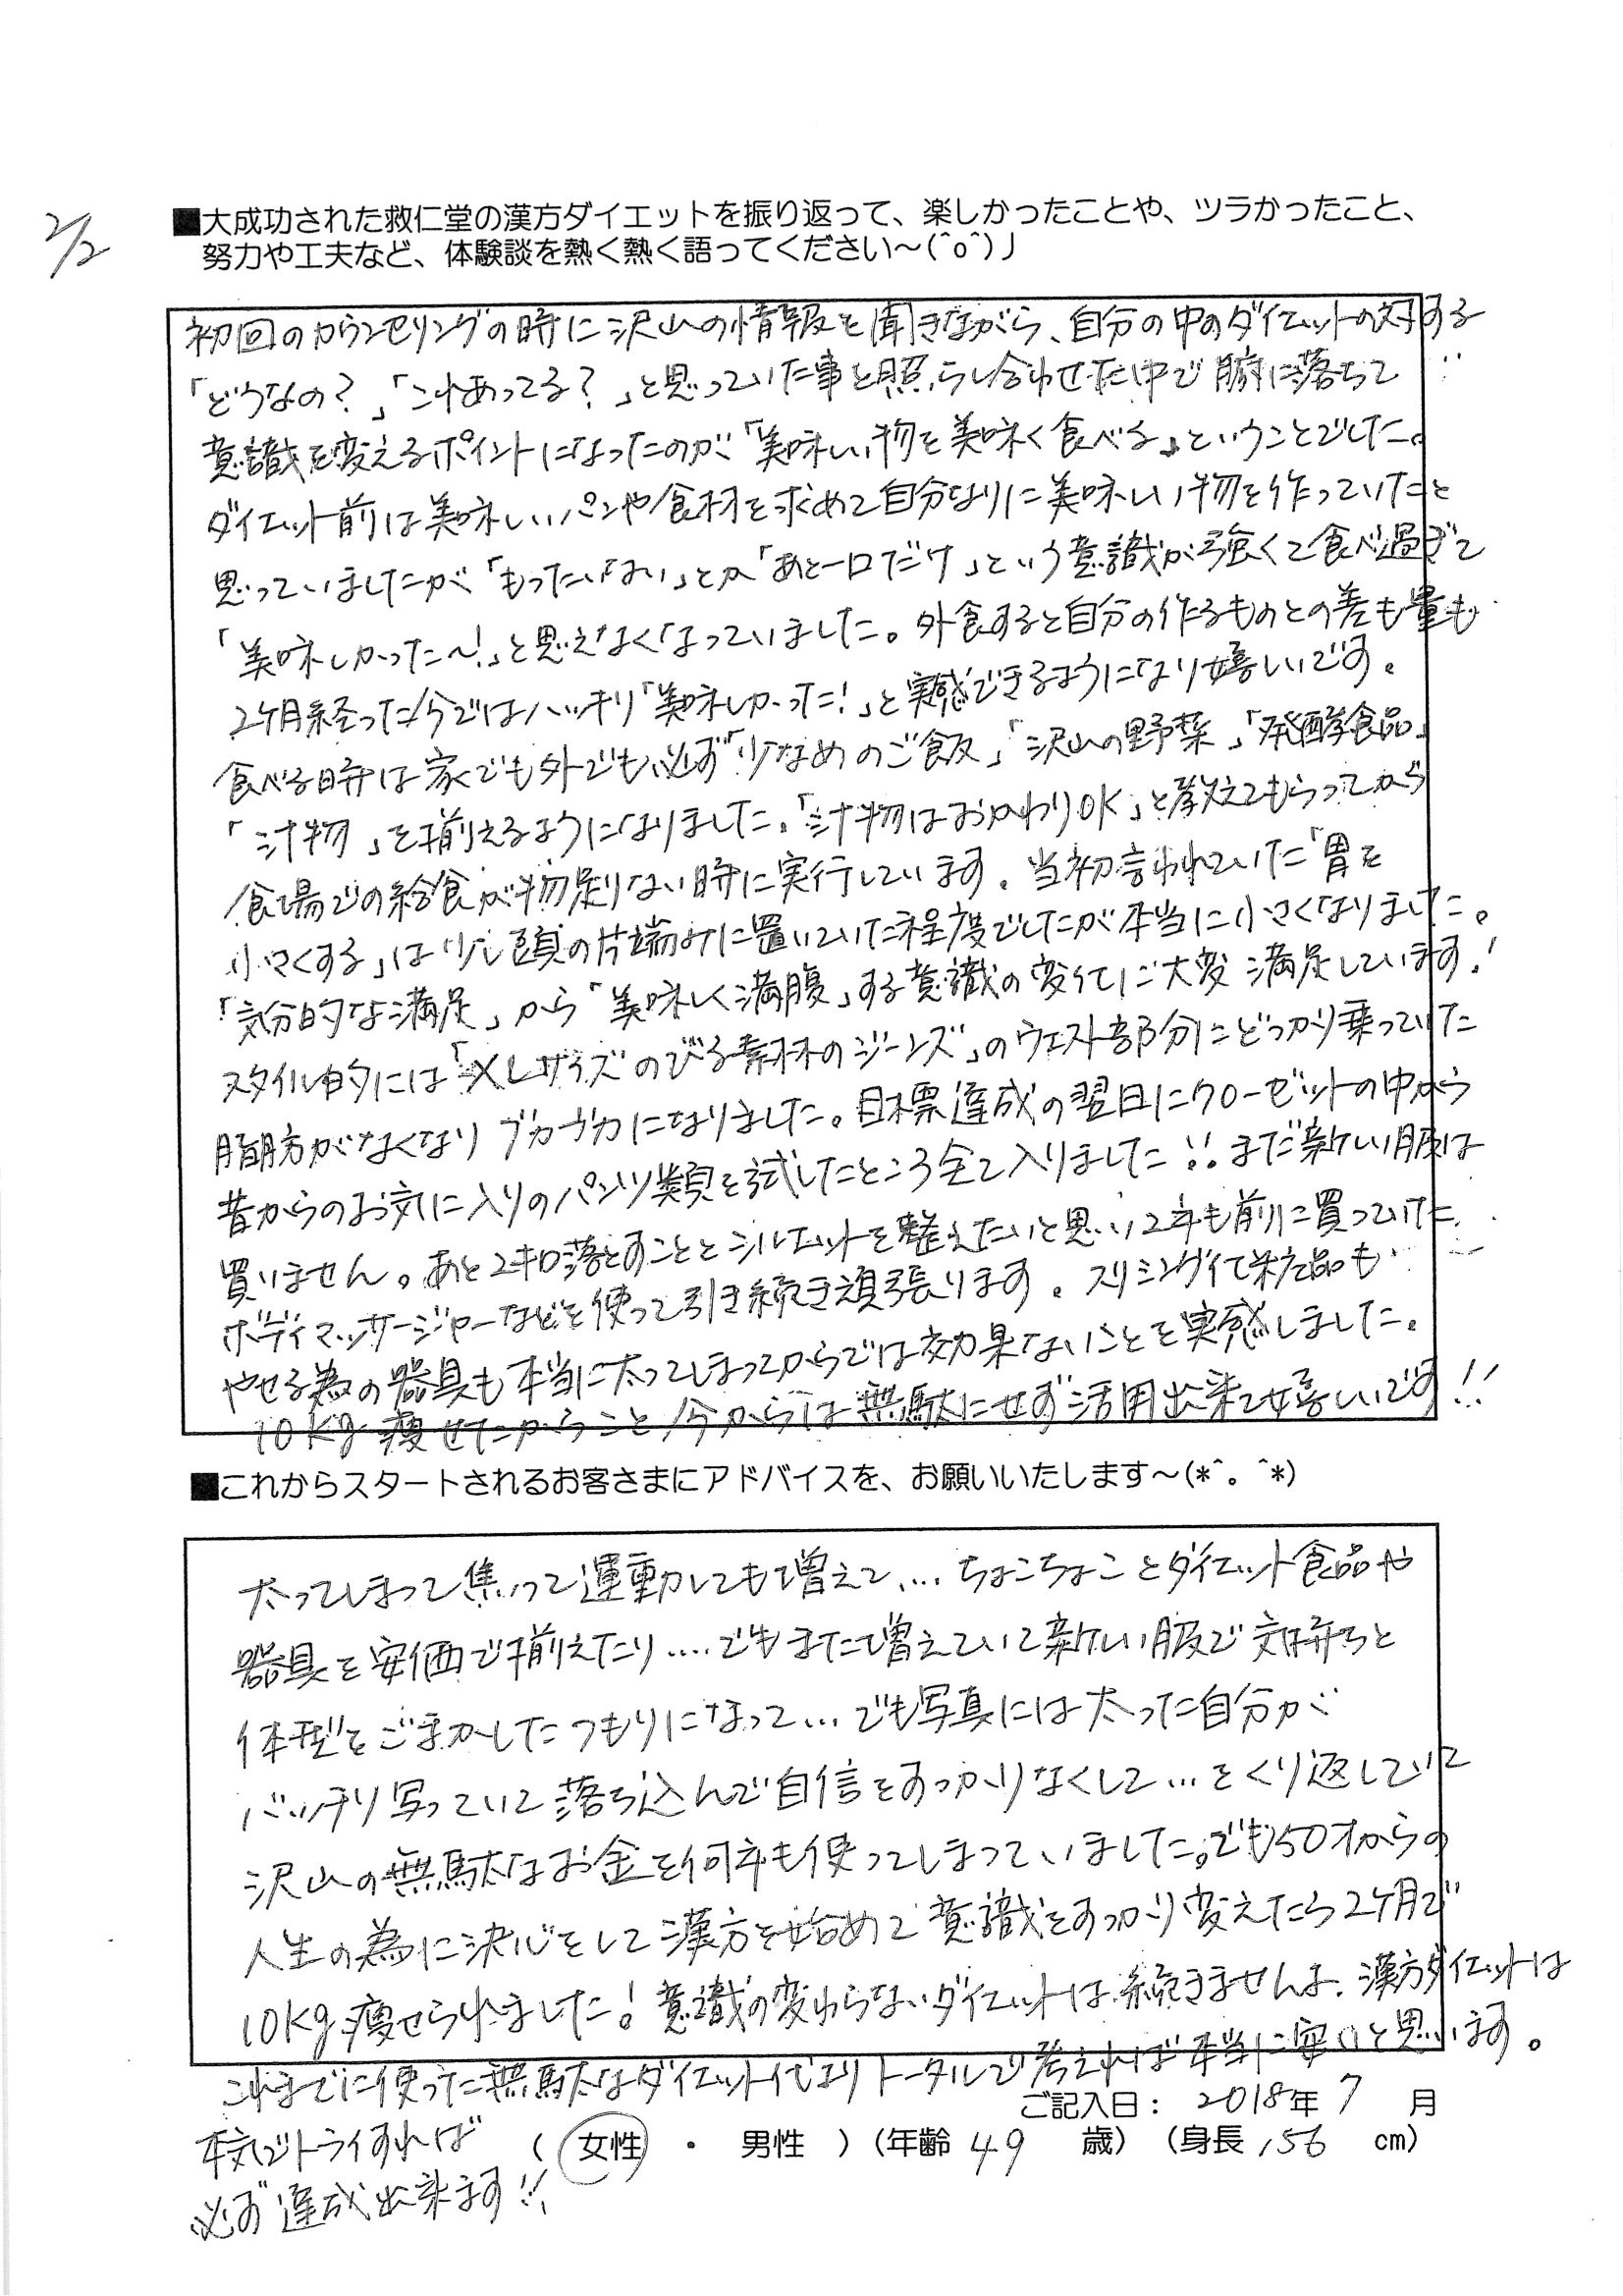 2/2
■大成功された救仁堂の漢方ダイエットを振り返って、楽しかったことや、ツラかったこと、
努力や工夫など、体験談を熱く熱く語ってください～(^o^)丿
初回のカウンセリングの時に沢山の情報を聞きながら、自分の中のダイエットの対する
「どうなの？」「これあってる？」と思っていた事と照らし合わせた中で腑に落ちて
意識を変えるポイントになったのが「美味しい物を美味く食べる」ということでした。
ダイエット前は美味しいパンや食材を求めて自分なりに美味しい物を作っていたと
思っていましたが「もったいない」とか「あと一口だけ」という意識が強くて食べ過ぎて
「美味しかった～！」と思えなくなっていました。外食すると自分の作るものとの差も量も
2ヶ月経った今ではハッキリ「美味しかった！」と実感できるようになり嬉しいです。
食べる時は家でも外でも必ず「少なめのご飯」「沢山の野菜」「発酵食品」
「汁物」を揃えるようになりました。「汁物はおかわりOK」と教えてもらってから
食場での給食が物足りない時に実行しています。当初言われていた「胃を
小さくする」は少し頭の片端みに置いていた程度でしたが本当に小さくなりました。
「気分的な満足」から「美味しく満腹」する意識の変化に大変満足しています！
スタイル的には「XLサイズのびる素材のジーンズ」のウエスト部分にどっかり乗っていた
脂肪がなくなりブカブカになりました。目標達成の翌日にクローゼットの中から
昔からのお気に入りのパンツ類を試したところ全て入りました!! まだ新しい服は
買いません。あと2キロ落とすこととシルエットを整えたいと思い2年も前に買っていた
ボディマッサージャーなどを使って引き続き頑張ります。スリミング化粧品も
やせる為の器具も本当に太ってしまってからでは効果ないことを実感しました。
10kg痩せたからこと今からは無駄にせず活用出来て嬉しいです!!
■これからスタートされるお客さまにアドバイスを、お願いいたします～(*^。^*)
太ってしまって焦って運動しても増えて…ちょこちょことダイエット食品や
器具を安価で揃えたり…でもまた増えていて新しい服で気持ちと
体型をごまかしたつもりになって…でも写真には太った自分が
バッチリ写っていて落ち込んで自信をすっかりなくして…をくり返していて
沢山の無駄なお金を何年も使ってしまっていました。でも50才からの
人生の為に決心をして漢方を始めて意識をすっかり変えたら2ヶ月で
10kg痩せられました！意識の変わらないダイエットは続きませんよ。漢方ダイエットは
これまでに使った無駄なダイエット代よりトータルで考えれば本当に安いと思います。
ご記入日： 2018年 7 月
本気でトライすれば （ 女性 ・ 男性 ）（年齢 49 歳）（身長 156 cm）
必ず達成出来ます!!